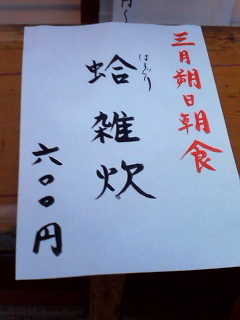 三月朔日朝食
はまぐり
蛤雑炊
六〇〇円